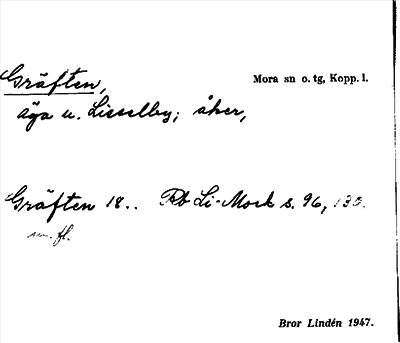 Gräften, Mora sn o. tg, Kopp. l.
äga u. Lisselby; åker,
Gräften 18.. Rb Li-Mock s. 96, 130.
m. fl.
Bror Lindén 1947.